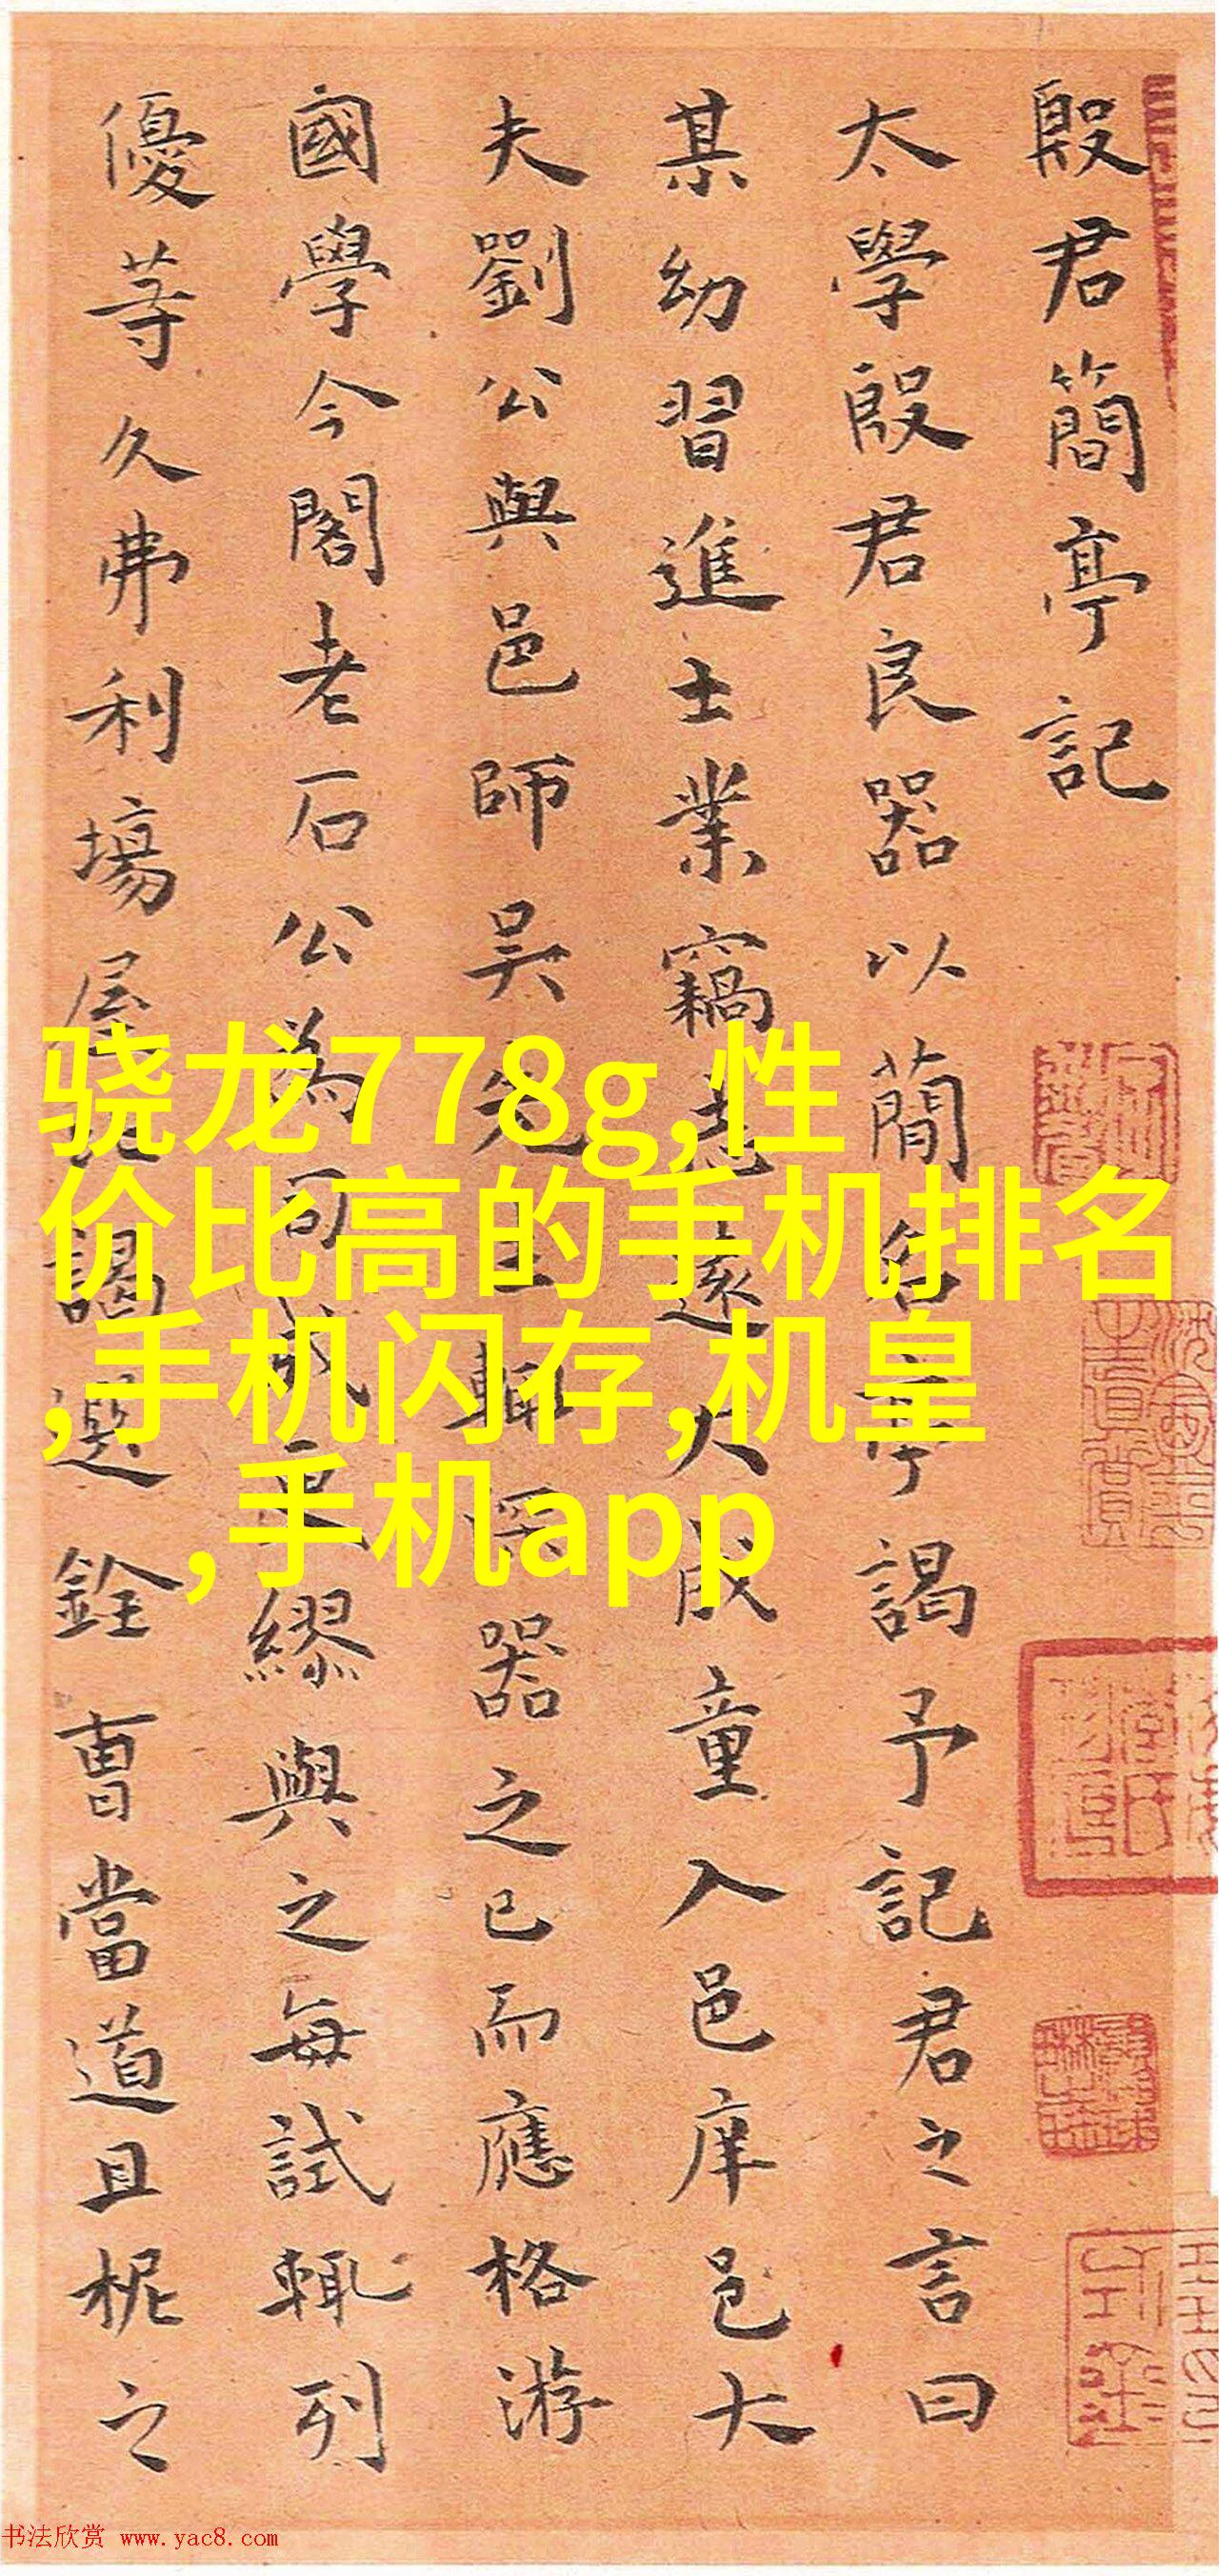 殷君簡亭記
太學殷君良器以簡名亭謁予記君之言曰
某幼習進士業竊志遠大成童入邑庠邑大
夫劉公與邑師吳先生輒深器之已而應格游
國學今閣老石公為司成更繆與之每試輒列
優等久弗利場屋謁選銓曹當道且柅之
骁龙778g,性
价比高的手机排名
,手机闪存,机皇
,手机app
书法欣赏 www.yac8.com